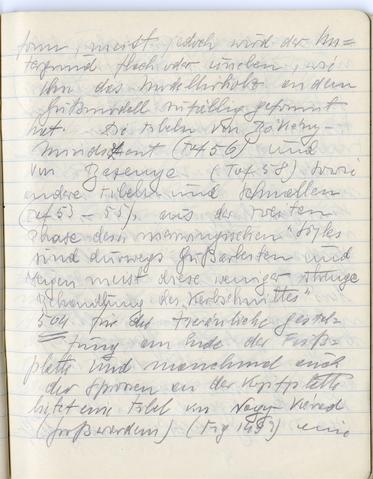 form, meist jedoch wird der Un=
tergrund flach oder uneben, wie
ihn das Modellierholz an dem
Gußmodell zufällig geformt
hat. Die Fibeln von Bökény-
mindszent (Taf 56) und
von Bezenye (Taf 58) sowie
andere Fibeln und Schnallen
(Taf 53 – 55), aus der zweiten
Phase des merowingischen "Styles
sind durwegs Gußarbeiten und
zeigen meist diese weniger strenge
Behandlung des Kerbschnittes"
504 für die tierähnliche gestal=
tung am Ende der Fuß=
platte und manchmal auch
der Sporen an der Kopfplatte
bietet eine Fibel von Nagy Várad
(Großwardein) (Fig 149?) eine